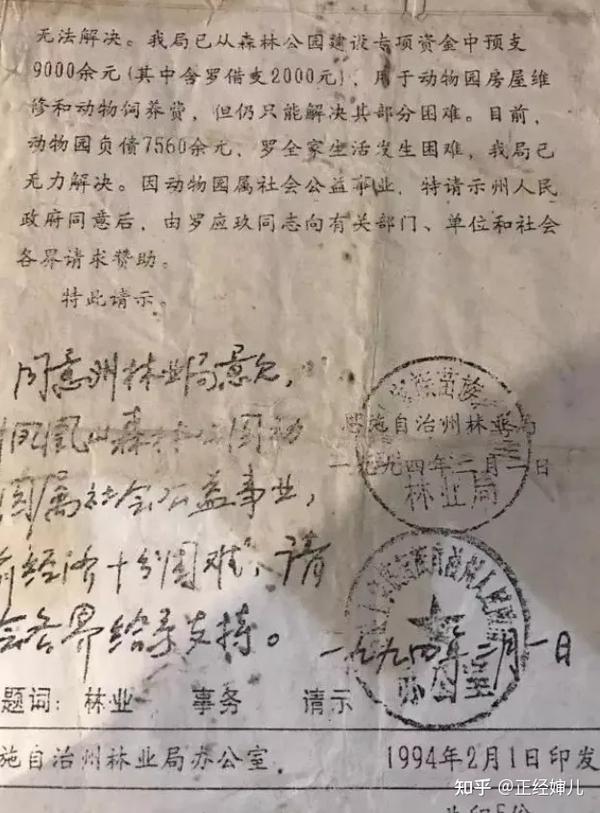 无法解决。我局已从森林公园建设专项资金中预支
9000余元(其中含罗借支2000元)，用于动物园房屋维
修和动物饲养赀，但仍只能解决其部分困难。目前，
动物园负债7560余元，罗全家生活发生困难，我局已
无力解决。因动物园属社会公益事业，特请示州人民
政府同意后，由罗应玖同志向有关部门、单位和社会
各界请求赞助。
特此请示。
同意州林业局意见，
凤凰山森林公园动
园属社会公益事业，
施自治州林业局
一九九四年二月一日
林业局
前经济十分困难，请
会各界给予支持。
一九九四年二月一日
办公室
题词：林业 事务 请示
施自治州林业局办公室
1994年2月1日印发
共印5份
知乎 @正经婶儿